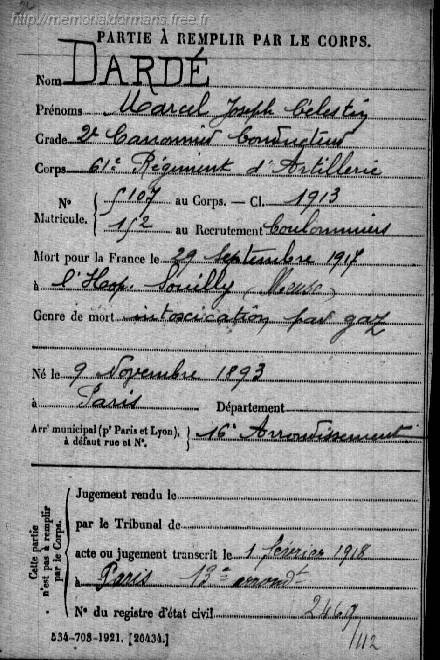 http://memorialdormans.free.fr
PARTIE À REMPLIR PAR LE CORPS.
Nom DARDÉ
Prénoms Marcel Joseph Célestin
Grade 2e Canonnier Conducteur
Corps 61e Régiment d'Artillerie
N° Matricule. 5107 au Corps. — Cl. 1913
152 au Recrutement Coulommiers
Mort pour la France le 29 Septembre 1917
à l'Hop. Souilly (Meuse)
Genre de mort intoxication par gaz
Né le 9 Novembre 1893
à Paris Département
Arrt municipal (pr Paris et Lyon), à défaut rue et N°. 16e Arrondissement
Cette partie n'est pas à remplir par le Corps.
Jugement rendu le
par le Tribunal de
acte ou jugement transcrit le 1 février 1918
à Paris 13e arrondt
N° du registre d'état civil 2469/112
534-708-1921. [26434.]